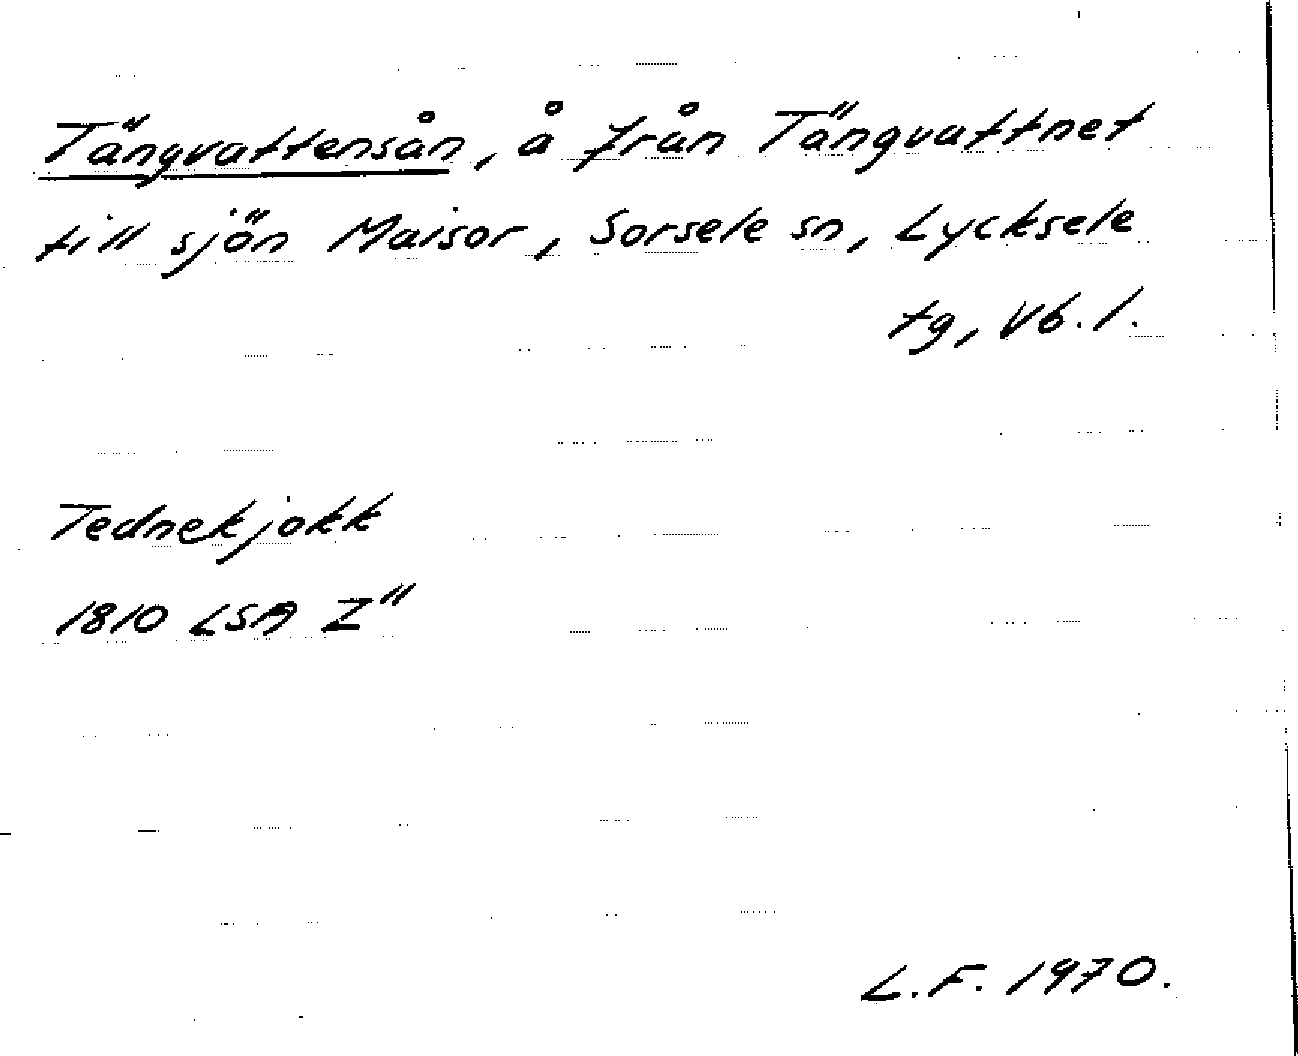 Tängvattensån, å från Tängvattnet
till sjön Maisor, Sorsele sn, Lycksele
tg, Vb. l.
Tednekjokk
1810 LSA Z"
L.F. 1970.